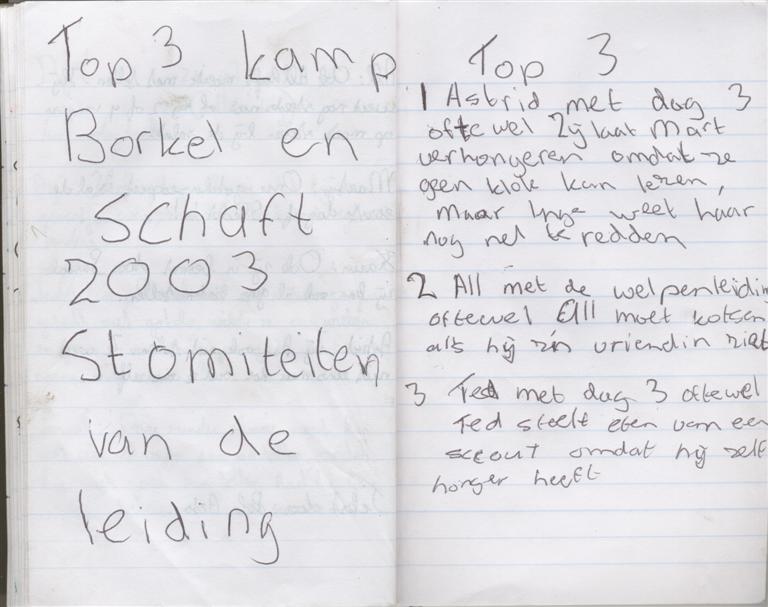 Top 3 kamp
Borkel en
Schaft
2003
Stomiteiten
van de
leiding
Top 3
1 Astrid met dag 3
oftewel Zij laat Mart
verhongeren omdat ze
geen klok kan lezen,
maar Inge weet haar
nog net te redden
2 All met de welpenleidin
oftewel All moet kotsen
als hij z'n vriendin ziet
3 Ted met dag 3 oftewel
Ted steelt eten van een
scout omdat hij zelf
honger heeft